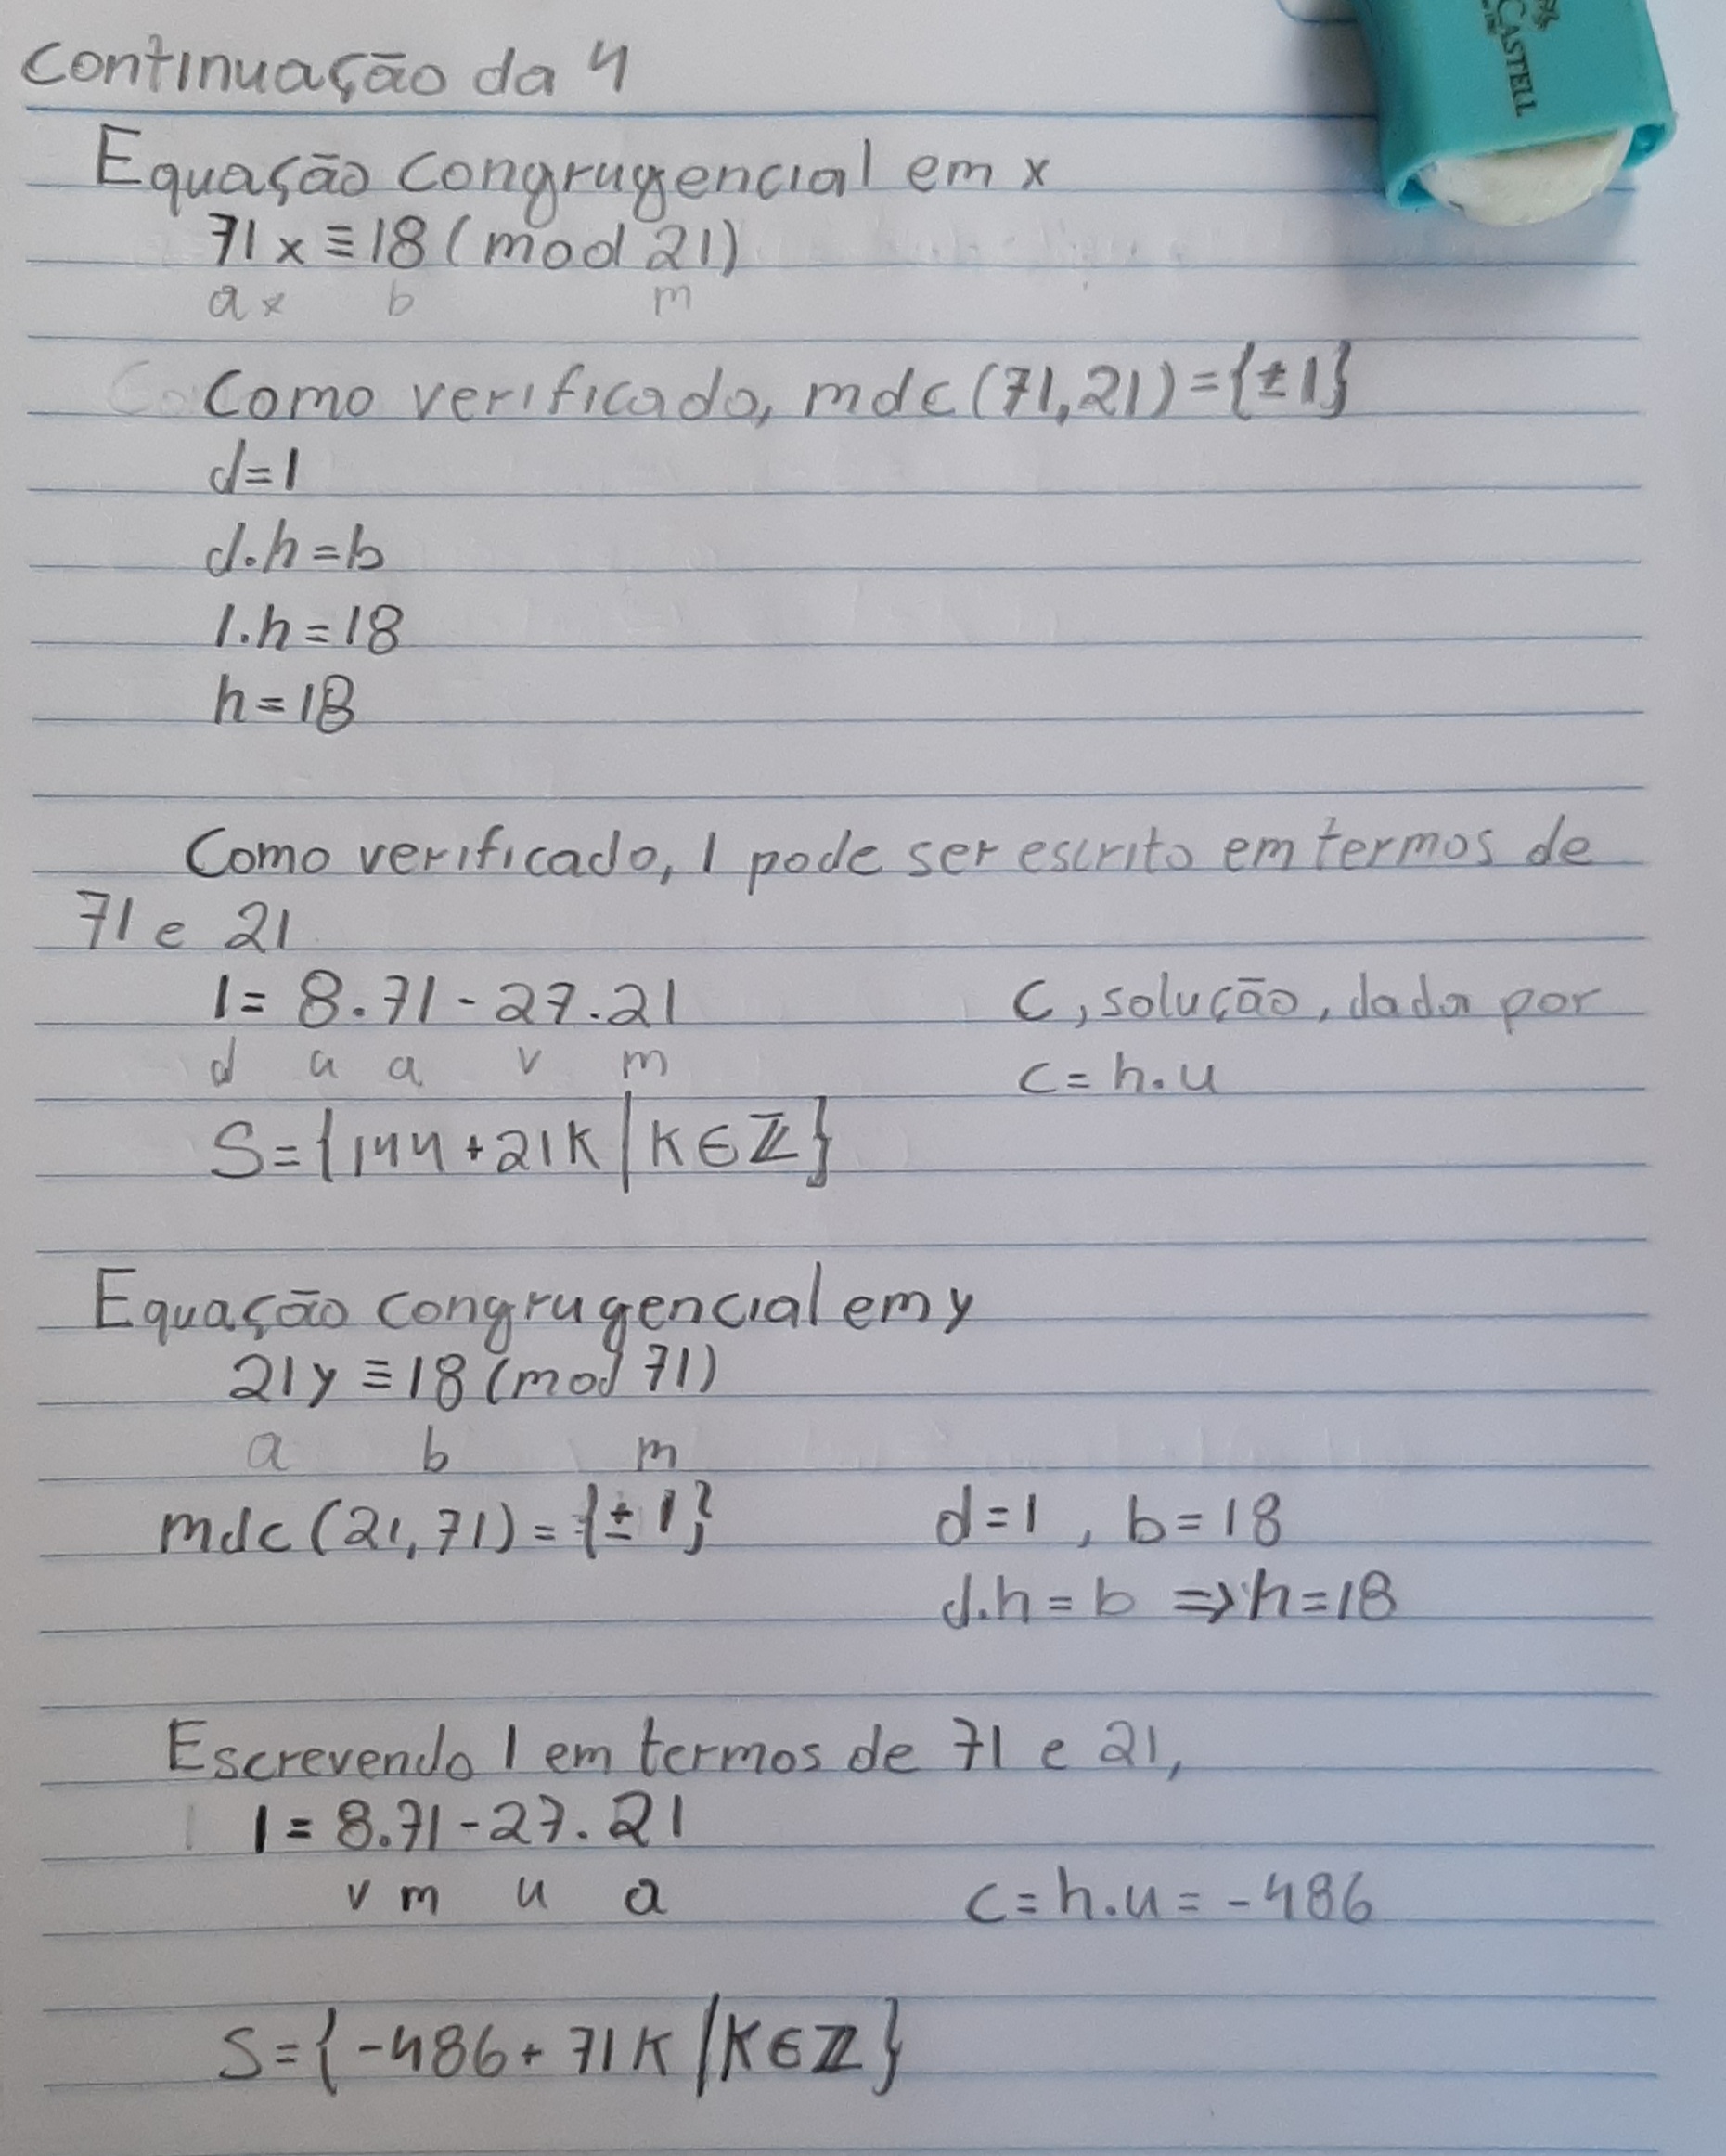 continuação da 4
Equação congrugencial em x
71x ≡ 18 (mod 21)
a x b m
Como verificado, mdc(71,21) = {±1}
d=1
d.h=b
1.h=18
h=18
Como verificado, 1 pode ser escrito em termos de
71 e 21
1 = 8.71 - 27.21
d u a v m
C, solução, dada por
c = h.u
S={144 + 21K | K∈ℤ}
Equação congrugencial em y
21y ≡ 18 (mod 71)
a b m
mdc (21,71) = {±1}
d=1 , b=18
d.h = b ⇒ h=18
Escrevendo 1 em termos de 71 e 21,
1 = 8.71 - 27.21
v m u a
c = h.u = -486
S={-486 + 71K | K∈ℤ}
CASTELL